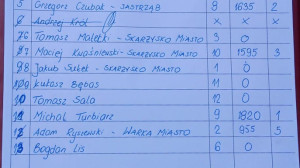 5 Grzegorz Czubak - JASTRZĄB 8 1635 2
6 Andrzej Król x x x
Tomasz Małecki - SKARŻYSKO MIASTO 3 0
Maciej Kwaśniewski - SKARŻYSKO MIASTO 10 1595 3
8 Jakub - SKARŻYSKO MIASTO 1 0
9 Łukasz Bębas 11 0
10 Tomasz Sala 12 0
Michał Turbiarz 9 1820 1
Adam Rysiewski - WARKA MIASTO 2 955 5
Bogdan Lis 6 0